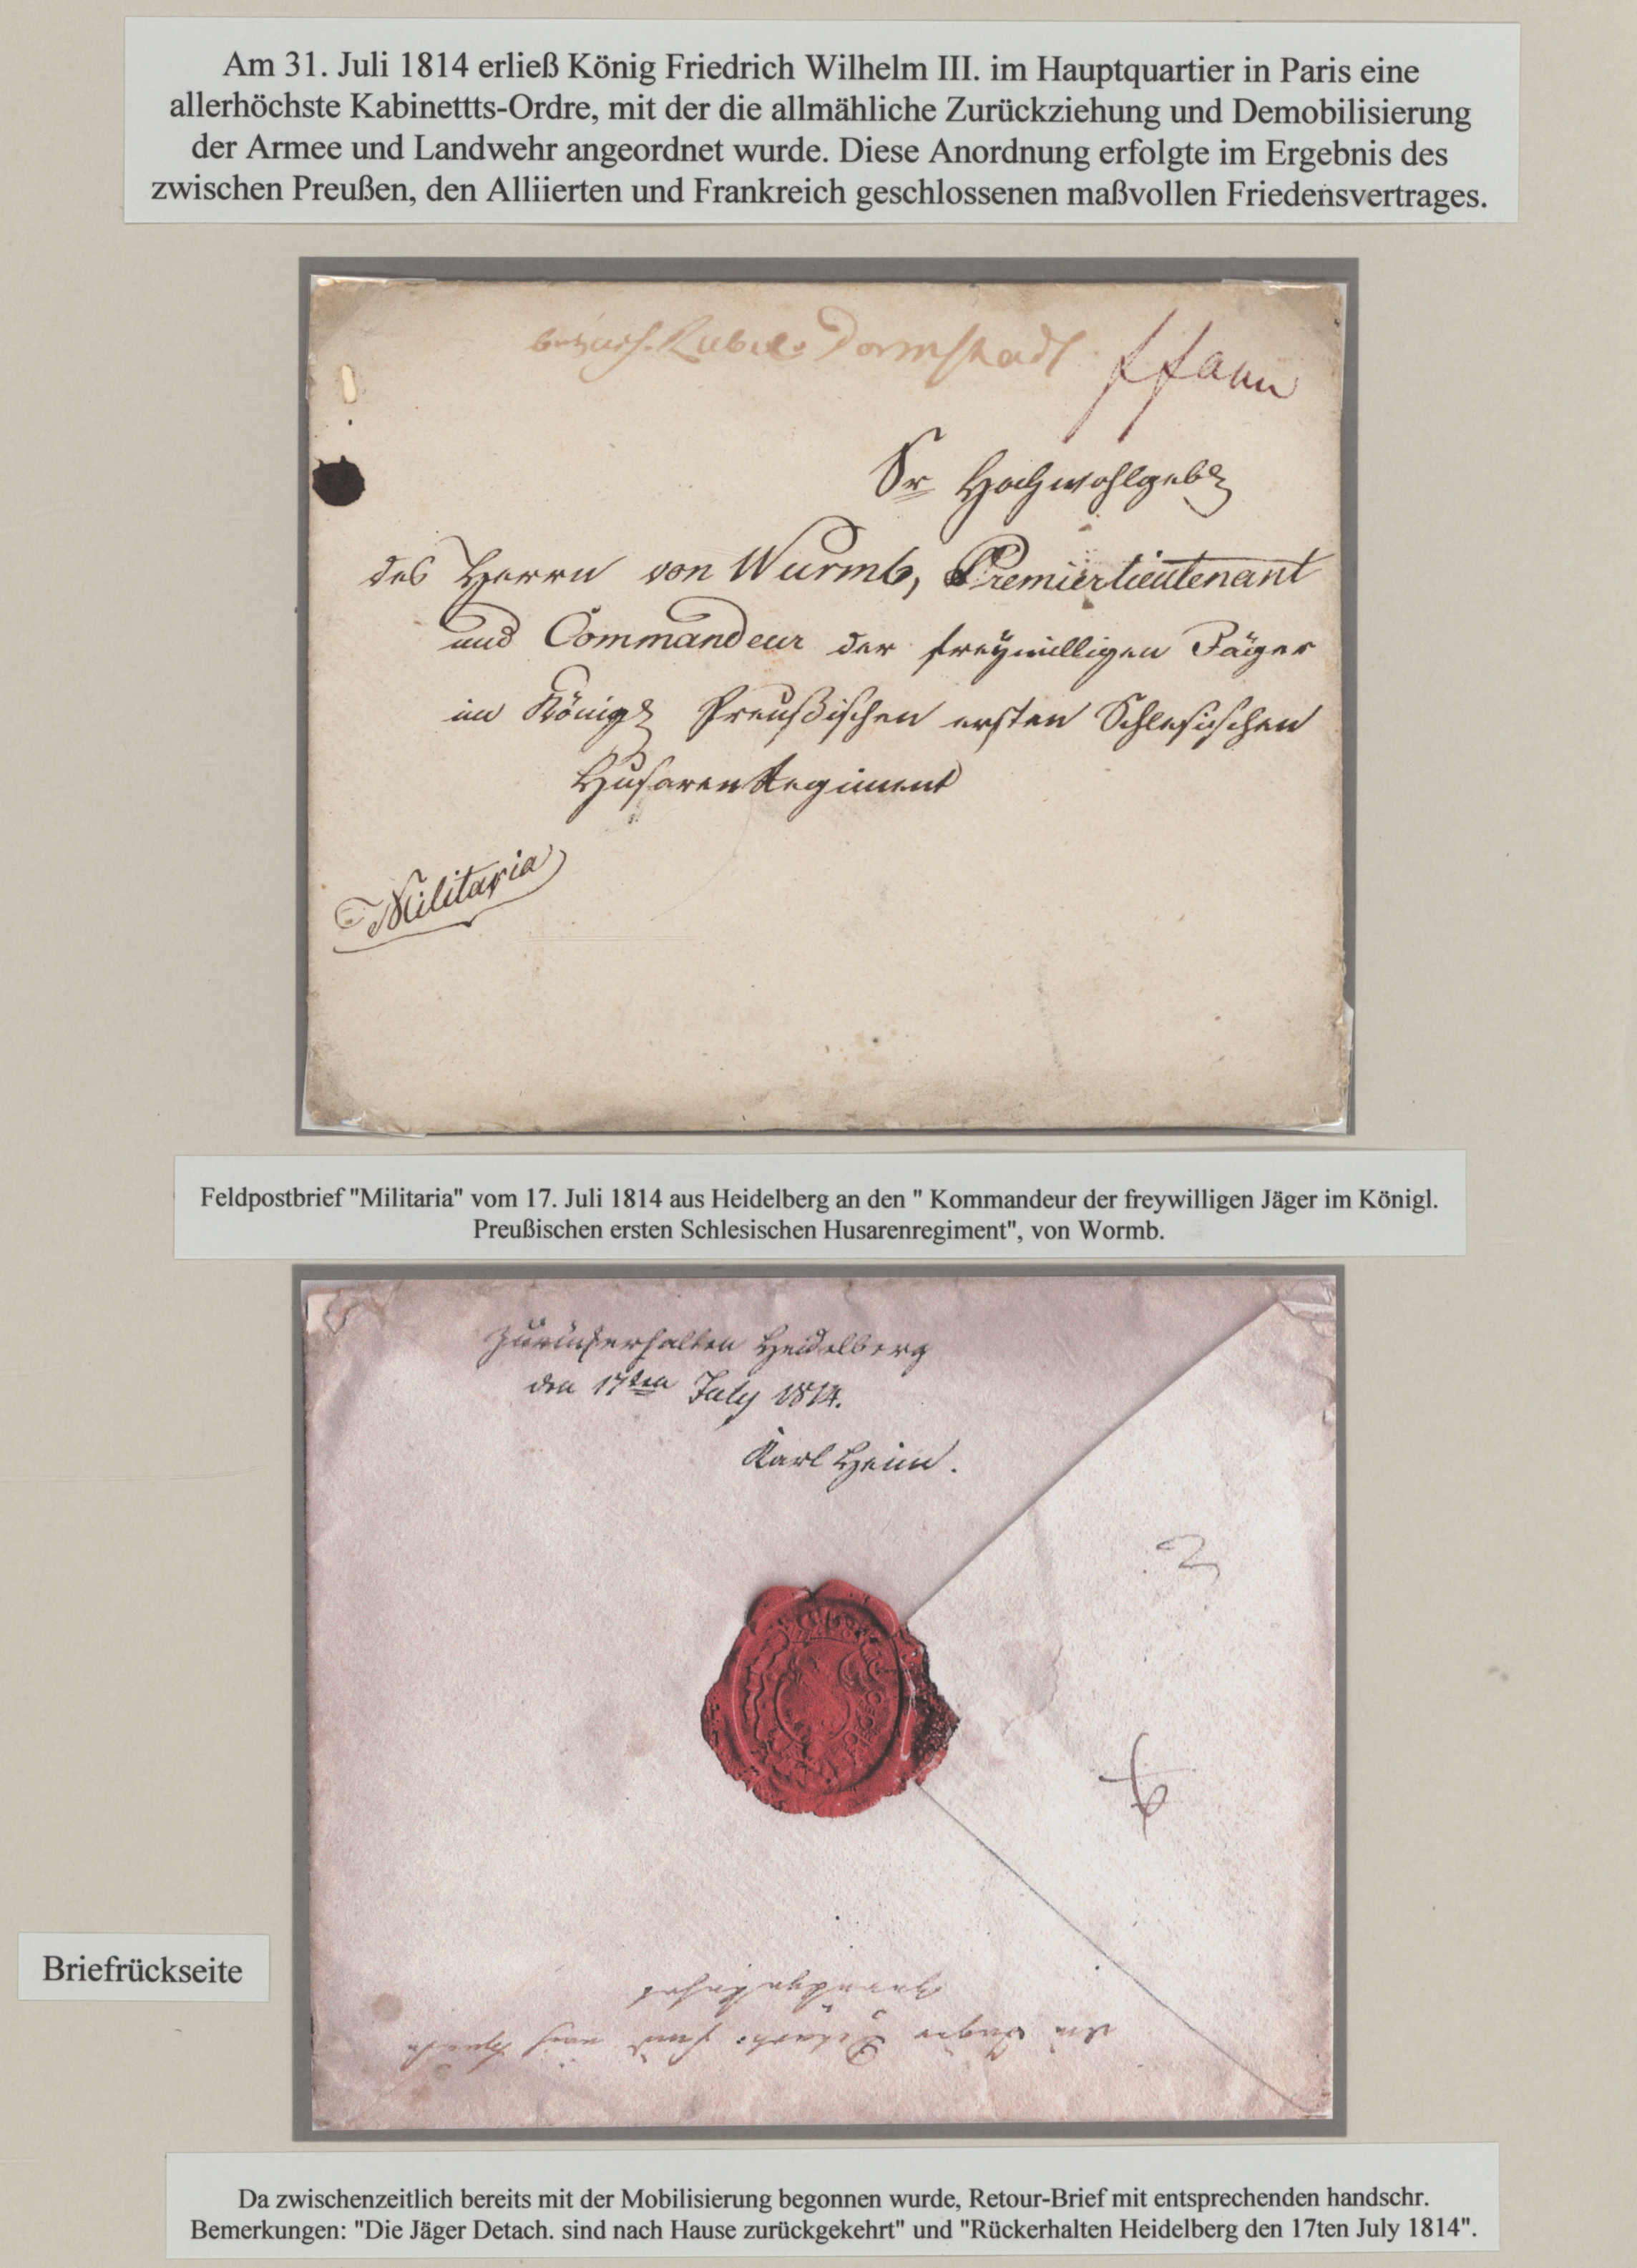 Am 31. Juli 1814 erließ König Friedrich Wilhelm III. im Hauptquartier in Paris eine
allerhöchste Kabinettts-Ordre, mit der die allmähliche Zurückziehung und Demobilisierung
der Armee und Landwehr angeordnet wurde. Diese Anordnung erfolgte im Ergebnis des
zwischen Preußen, den Alliierten und Frankreich geschlossenen maßvollen Friedensvertrages.
Darmstadt
Sr Hochwohlgeb
des Herrn von Wurmb, Premierlieutenant
und Commandeur der freywilligen Jäger
im Königl Preußischen ersten Schlesischen
Husaren Regiment
Militaria
Feldpostbrief "Militaria" vom 17. Juli 1814 aus Heidelberg an den " Kommandeur der freywilligen Jäger im Königl.
Preußischen ersten Schlesischen Husarenregiment", von Wormb.
Zurückerhalten Heidelberg
den 17ten July 1814.
Karl Heim.
Briefrückseite
die Jäger Detach. sind nach Hause
zurückgekehrt
Da zwischenzeitlich bereits mit der Mobilisierung begonnen wurde, Retour-Brief mit entsprechenden handschr.
Bemerkungen: "Die Jäger Detach. sind nach Hause zurückgekehrt" und "Rückerhalten Heidelberg den 17ten July 1814".